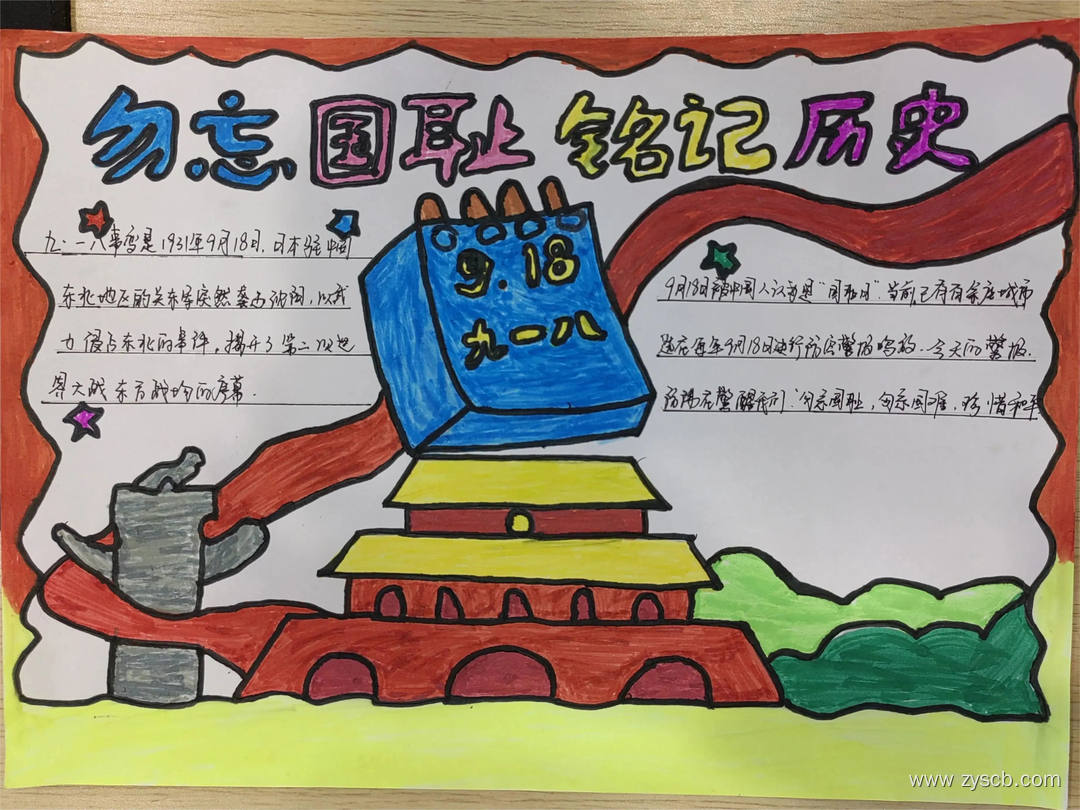 勿忘国耻 铭记历史
九·一八事变是1931年9月18日,日本驻中国
东北地区的关东军突然袭占沈阳,以武
力侵占东北的事件,揭开了第二次世
界大战东方战场的序幕.
9.18
九一八
9月18日被中国人认为是“国耻日”.当前,已有百余座城市
选在每年9月18日进行防空警报鸣放.今天的警报.
在警醒我们:勿忘国耻,勿忘国难,珍惜和平
www.zyscb.com